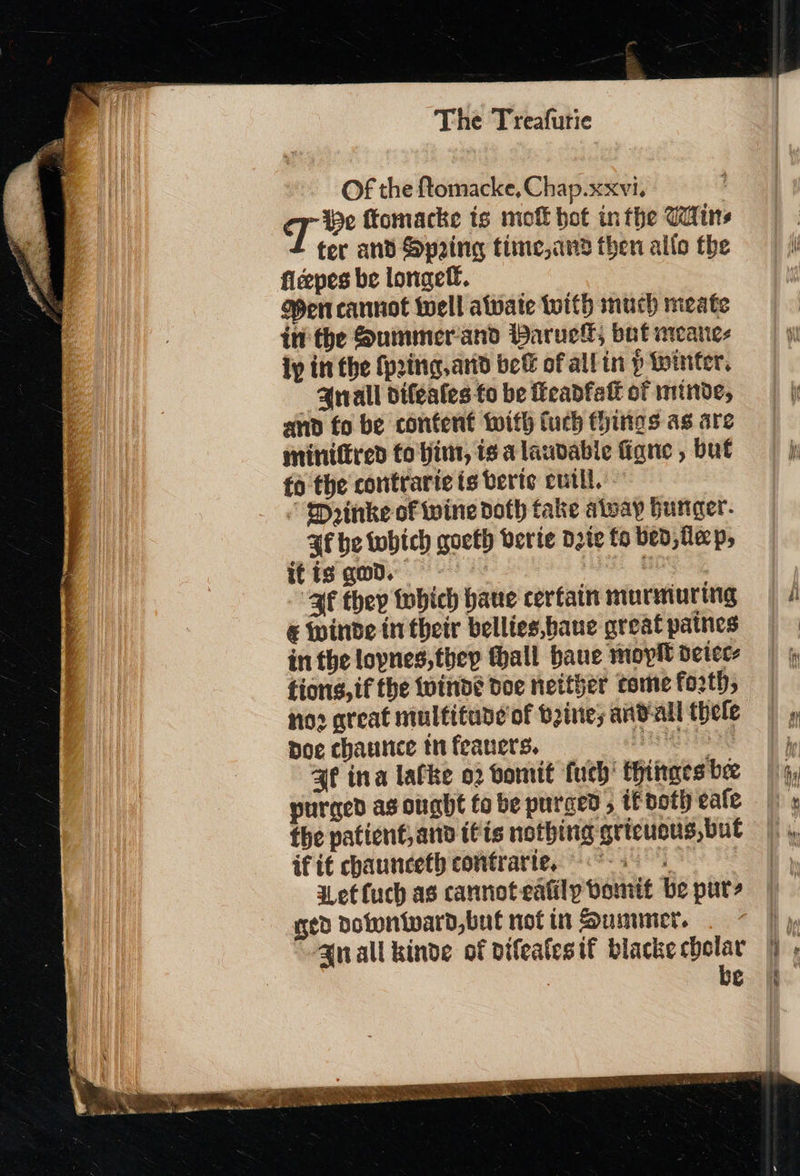 The Treaſurie
Of the ſtomacke, Chap.xxvi.
THe ſtomacke is moſt hot in the Win-
ter and Spring time, and then alſo the
ſléepes be longeſt.
Men cannot well awaie with much meate
in the Summer and Harueſt, but meane-
ly in the ſpring, and beſt of all in yͤ winter.
In all diſeaſes to be ſteadfaſt of minde,
and to be content with ſuch things as are
miniſtred to him, is a laudable ſigne, but
to the contrarie is verie euill.
Drinke of wine doth take away hunger.
If he which goeth verie drie to bed, ſléep,
it is good.
If they which haue certain murmuring
& winde in their bellies, haue great paines
in the loynes, they ſhall haue moyſt deiec-
tions, if the winde doe neither come forth,
nor great multitude of vrine, and all theſe
doe chaunce in feauers.
If in a laſke or vomit ſuch thinges bée
purged as ought to be purged, it doth eaſe
the patient, and it is nothing grieuous, but
if it chaunceth contrarie.
Let ſuch as cannot eaſily vomit be pur-
ged downward, but not in Summer.
In all kinde of diſeaſes if blacke cholar
be